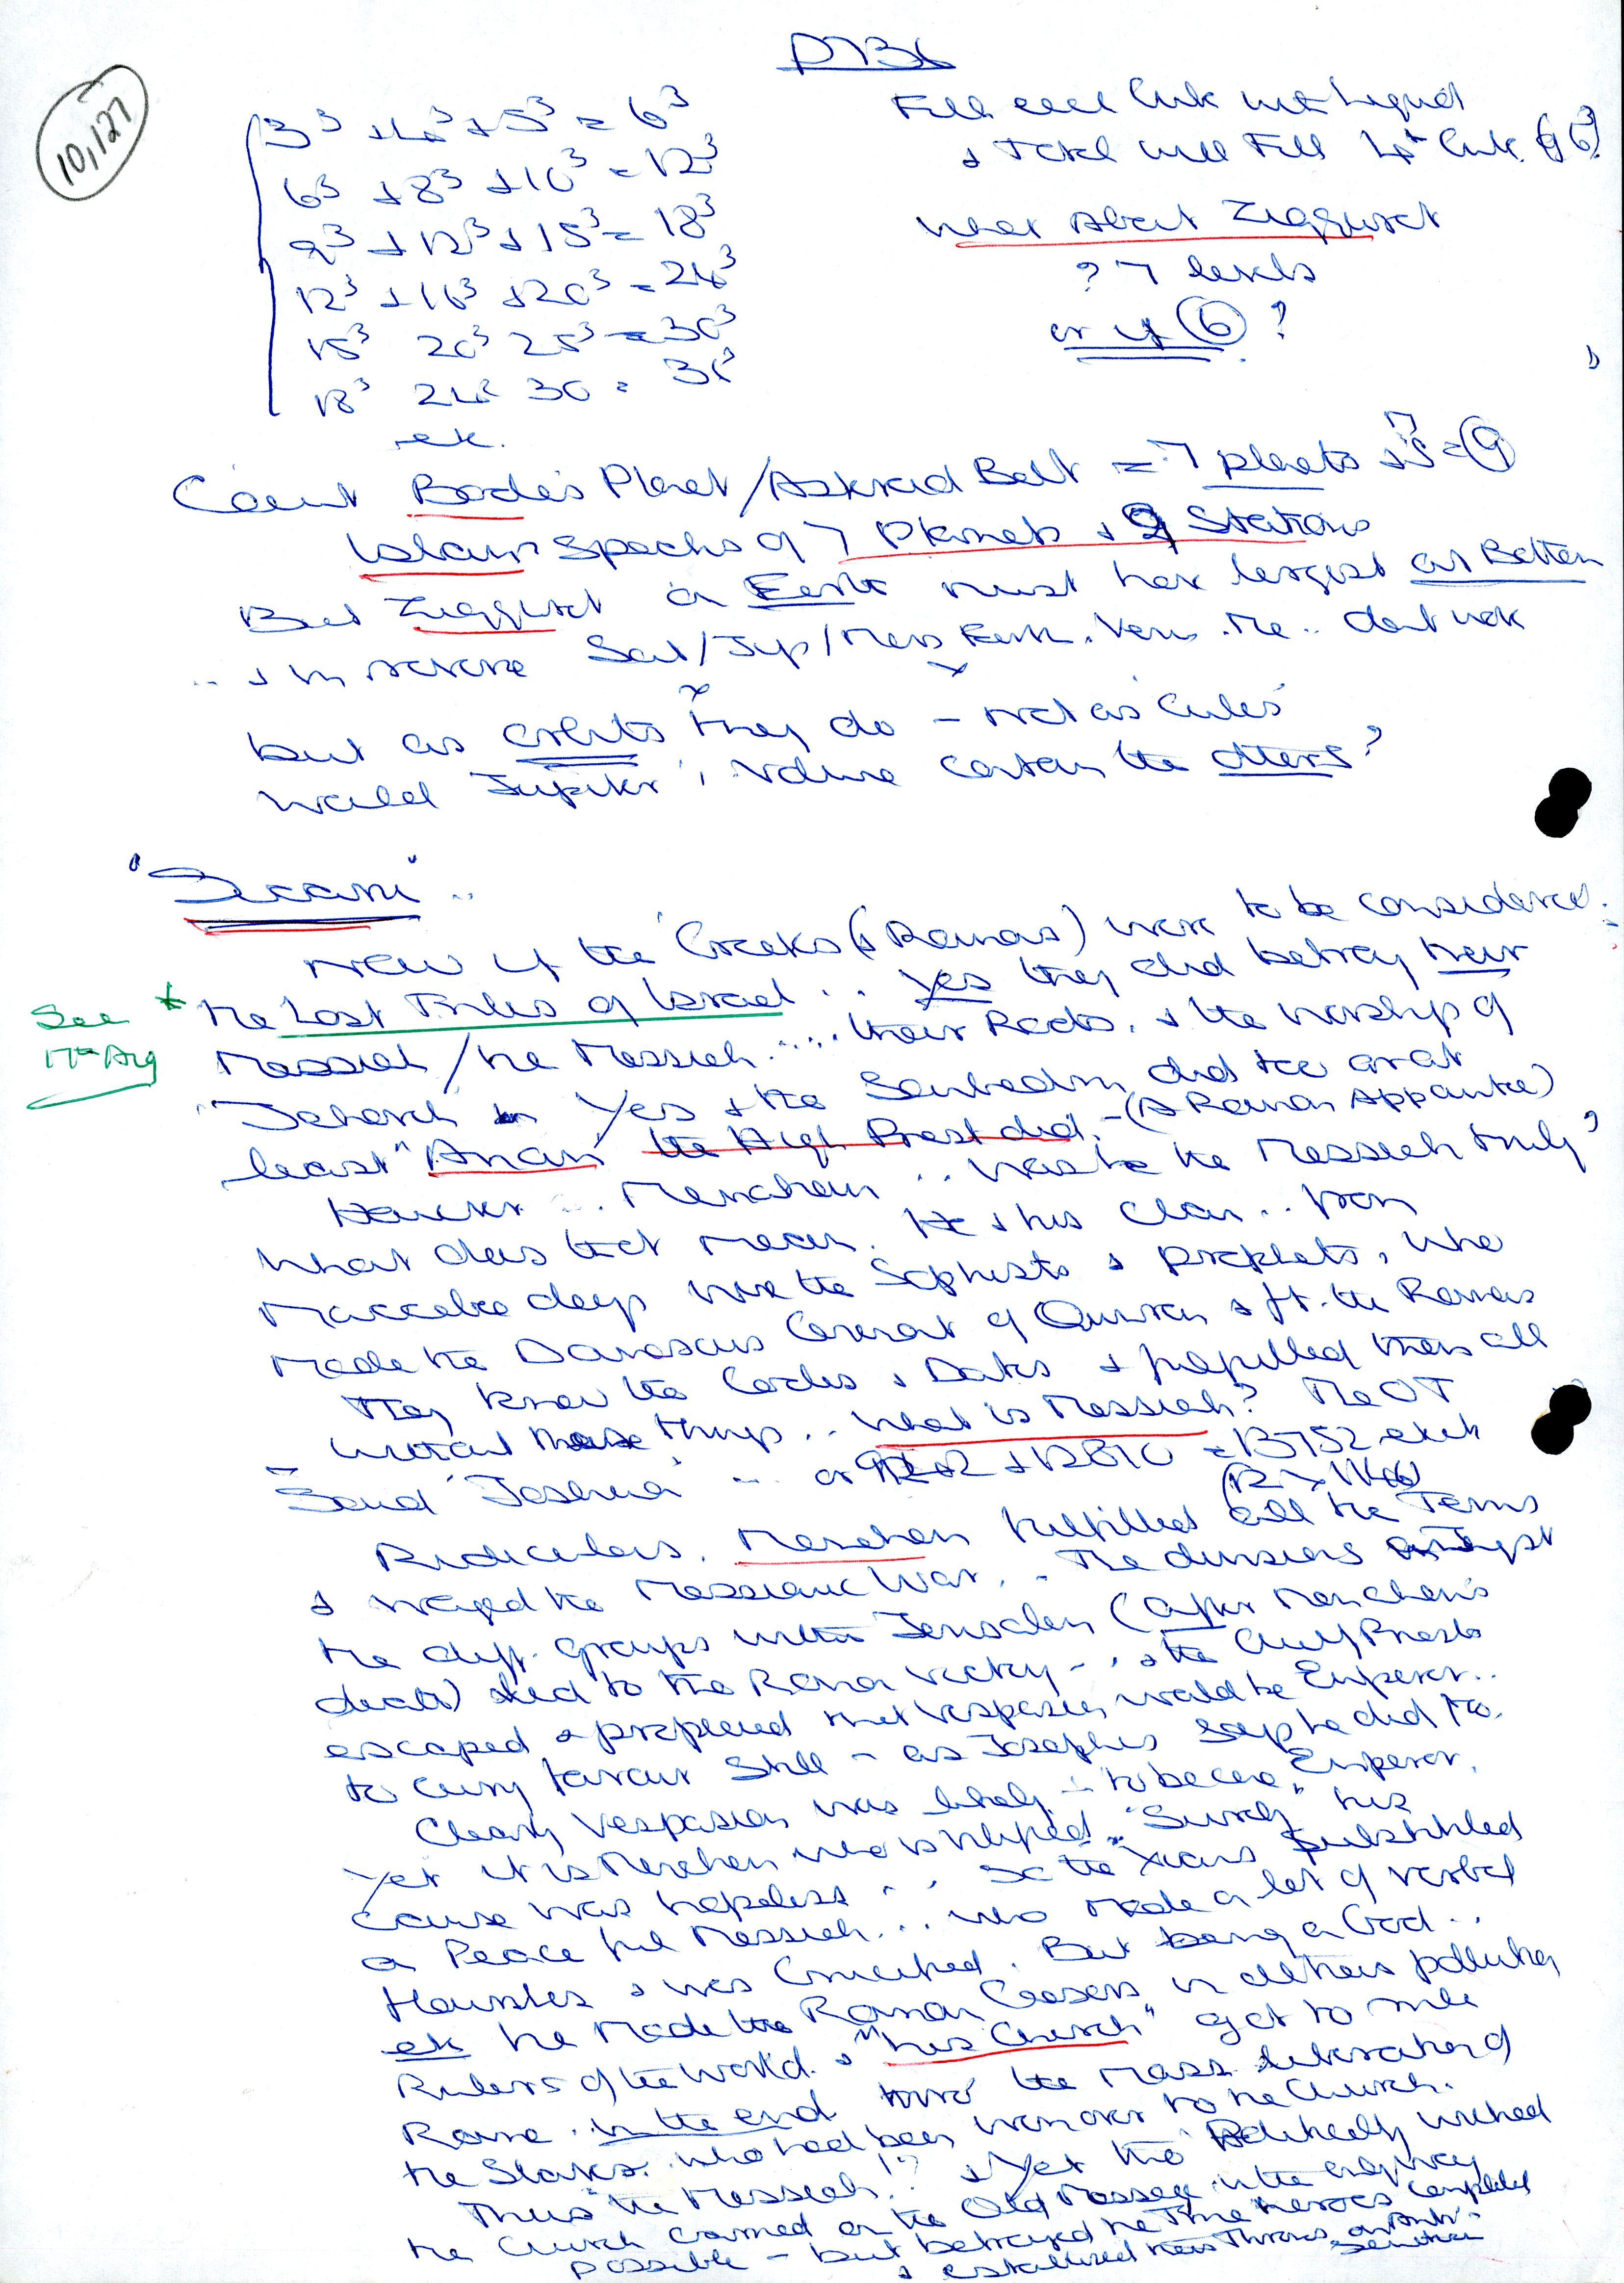 D736
10,127
3³ + 4³ + 5³ = 6³
Fill each Cube with Liquid
6³ + 8³ + 10³ = 12³
+ Total will Fill 4th Cube (of 6³)
9³ + 12³ + 15³ = 18³
What About Ziggurat
12³ + 16³ + 20³ = 24³
? 7 levels
15³ 20³ 25³ = 30³
or if 6 ?
18³ 24 30 =
etc.
Count Bode's Planet / Asteroid Belt = 7 planets = 9
Islam speaks of 7 Planets + 9 Stations
But Ziggurat on Earth must have largest at Bottom
.. + in reverse Sat/Jup/Mars Earth. Venus. Me .. dont work
but as orbits they do - not as 'Cubes'
would Jupiter's volume contain the others?
" ..
Now if the Greeks (+ Romans) were to be considered
See * the Lost Tribes of Israel .. Yes they did betray their
Messiah / the Messiah ..... their Roots. + the worship of
'Jehovah Yes + the Sanhedrin did too or at
least "Anan" the High Priest did. - (A Roman Appointee)
However ... Menahem .. was he the Messiah truly?
What does that mean. He + his Clan .. from
Maccabee days were the Sophists + prophets, who
Made the Damascus Covenant of Qumran + ft. the Romans
They knew the Codes + Dates + fulfilled them all
without those things .. What is Messiah? The OT
= Said 'Joshua' ... or + 12810 = 13752
(12 x 1146)
Ridiculous. Menahem fulfilled all the Terms
+ waged the Messianic War. .. The divisions amongst
the diff. groups within Jerusalem (after Menahem's
death) led to the Roman victory - . + the Chief Priests
escaped + prophesied that Vespasian would be Emperor..
to curry favour still - as Josephus says he did too.
Clearly Vespasian was likely - to become Emperor.
Yet it is Menahem who is "Surely" his
cause was hopeless .. So the Xians substituted
a Peaceful Messiah ... who made a lot of verbal
Flourishes + was Crucified. But being a God ..
etc he Made the Roman Caesars in all their pollution
Rulers of the World. + "his Church" got to rule
Rome . in the end the Mass liberation of
the Slaves. who had been won over to the Church.
Thus "the Messiah"!? + Yet tho' Politically wicked
the Church carried on the Old Message in the only way
possible - but betrayed the True heroes completely
+ established their Thrones on Anti-
Semitism